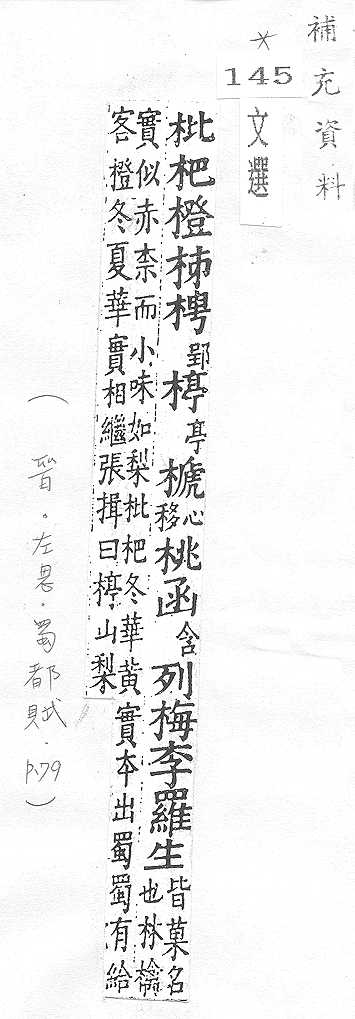 補充資料
＊
145
文選
枇杷橙柹梬郢楟亭榹心移桃函含列梅李羅生皆菓名也林檎
實似赤柰而小味如梨枇杷冬華黃實本出蜀蜀有給
客橙冬夏華實相繼張揖曰楟山梨
（晉。左思．蜀都賦．p.79）